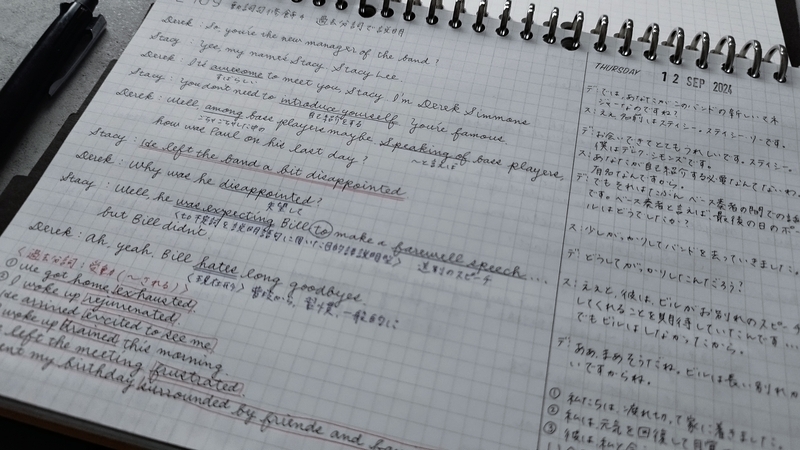 Derek: So, you're the new manager of the band?
Stacy: Yes, my name's Stacy. Stacy Lee.
Derek: It's awesome to meet you, Stacy. I'm Derek Simmons
すばらしい
Stacy: You don't need to introduce yourself. You're famous.
自己紹介をする
Derek: Well, among base players maybe. Speaking of base players,
~と言えば
how was Paul on his last day?
Stacy: He left the band a bit disappointed
Derek: Why was he disappointed?
失望して
Stacy: Well, he was expecting Bill to make a farewell speech....
送別のスピーチ
but Bill didn't
Derek: Ah, yeah, Bill hates long goodbyes.
<現在時制>
<過去分詞: 受動 (~される)>
① We got home exhausted.
I woke up rejuvenated.
He arrived excited to see me.
woke up drained this morning.
left the meeting frustrated.
my birthday surrounded by friends and
THURSDAY
12 SEP 2024
デ: では、あなたがこのバンドの新しいマネ
ージャーなのですね?
ス: ええ、名前はステイシー。ステイシー・リーです。
デ: お会いできてとてもうれしいです。ステイシー。
僕はデレク・シモンズです。
ス: あなたが自己紹介する必要なんてないわ。
有名なんですから。
デ: でもそれはたぶん、ベース奏者の間での話
です。ベース奏者と言えば、最後の日のポー
ルはどうでしたか?
ス: 少しがっかりしてバンドを去っていきました。
デ: どうしてがっかりしたんだろう?
ス: ええと、彼は、ビルがお別れのスピーチ
してくれることを期待していたんです...
でもビルはしなかったから。
デ: ああ、まあそうだね。ビルは長い別れが
いですからね。
① 私たちは、疲れ切って家に着きました。
② 私は、元気を回復して目覚
③ 彼は、私と会